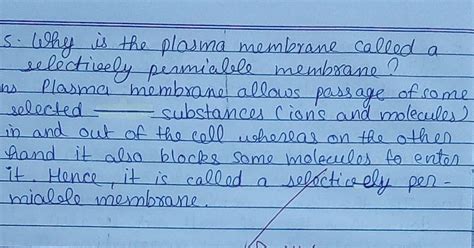 5. Why is the plasma membrane called a
selectively permialele membrane?
ns Plasma membrane allows passage of some
selected substances (ions and molecules)
in and out of the cell whereas on the other
hand it also blocks some molecules to enter
it. Hence, it is called a selectively per-
mialele membrane.